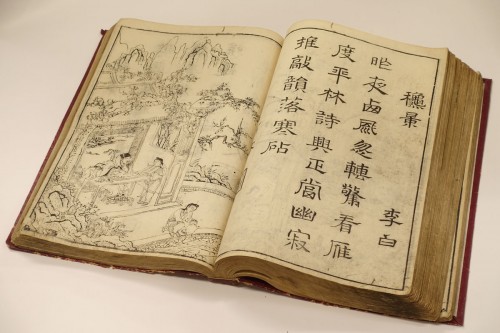 穐景 李白
昨夜卥風忽轉驚看雁
度平林詩興正當幽寂
推敲韻落寒砧